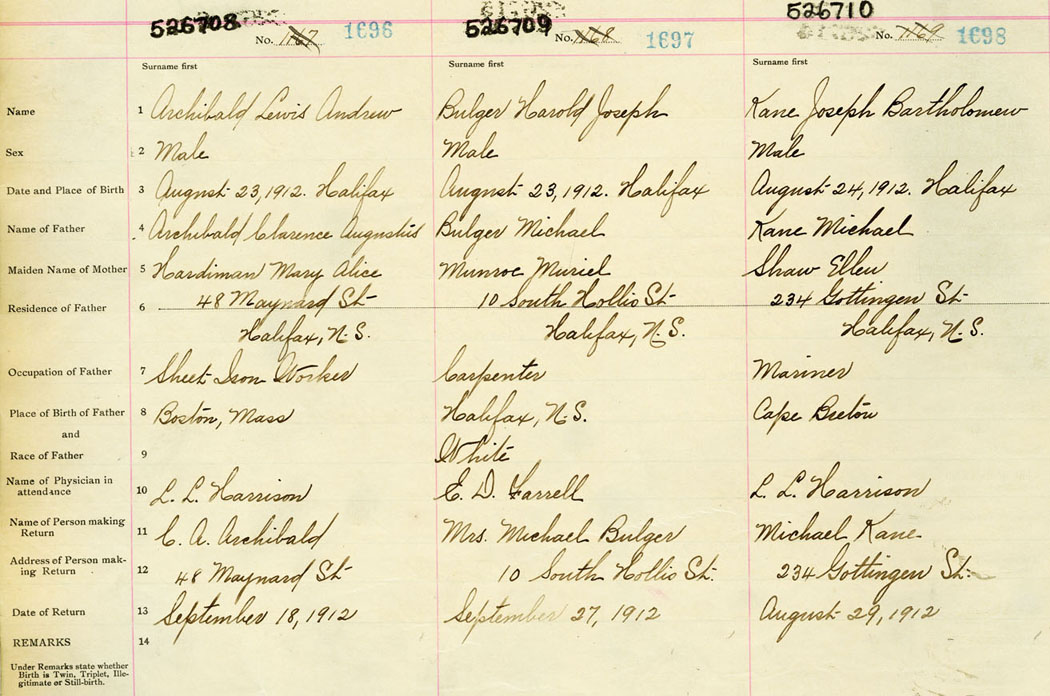 526708 526709 526710
No. 1167 1696 No. 1168 1697 No. 1169 1698
Surname first Surname first Surname first
Name 1 Archibald Lewis Andrew Bulger Harold Joseph Kane Joseph Bartholomew
Sex 2 Male Male Male
Date and Place of Birth 3 August 23, 1912. Halifax August 23, 1912. Halifax August 24, 1912. Halifax
Name of Father 4 Archibald Clarence Augustus Bulger Michael Kane Michael
Maiden Name of Mother 5 Hardiman Mary Alice Munroe Muriel Shaw Ellen
Residence of Father 6 48 Maynard St 10 South Hollis St 234 Gottingen St
Halifax, N.S. Halifax, N.S. Halifax, N.S.
Occupation of Father 7 Sheet Iron Worker Carpenter Mariner
Place of Birth of Father 8 Boston, Mass Halifax, N.S. Cape Breton
and
Race of Father 9 White
Name of Physician in
attendance 10 L. L. Harrison E. D. Farrell L. L. Harrison
Name of Person making
Return 11 C. A. Archibald Mrs. Michael Bulger Michael Kane
Address of Person mak-
ing Return 12 48 Maynard St 10 South Hollis St. 234 Gottingen St.
Date of Return 13 September 18, 1912 September 27, 1912 August 29, 1912
REMARKS 14
Under Remarks state whether
Birth is Twin, Triplet, Ille-
gitimate or Still-birth.